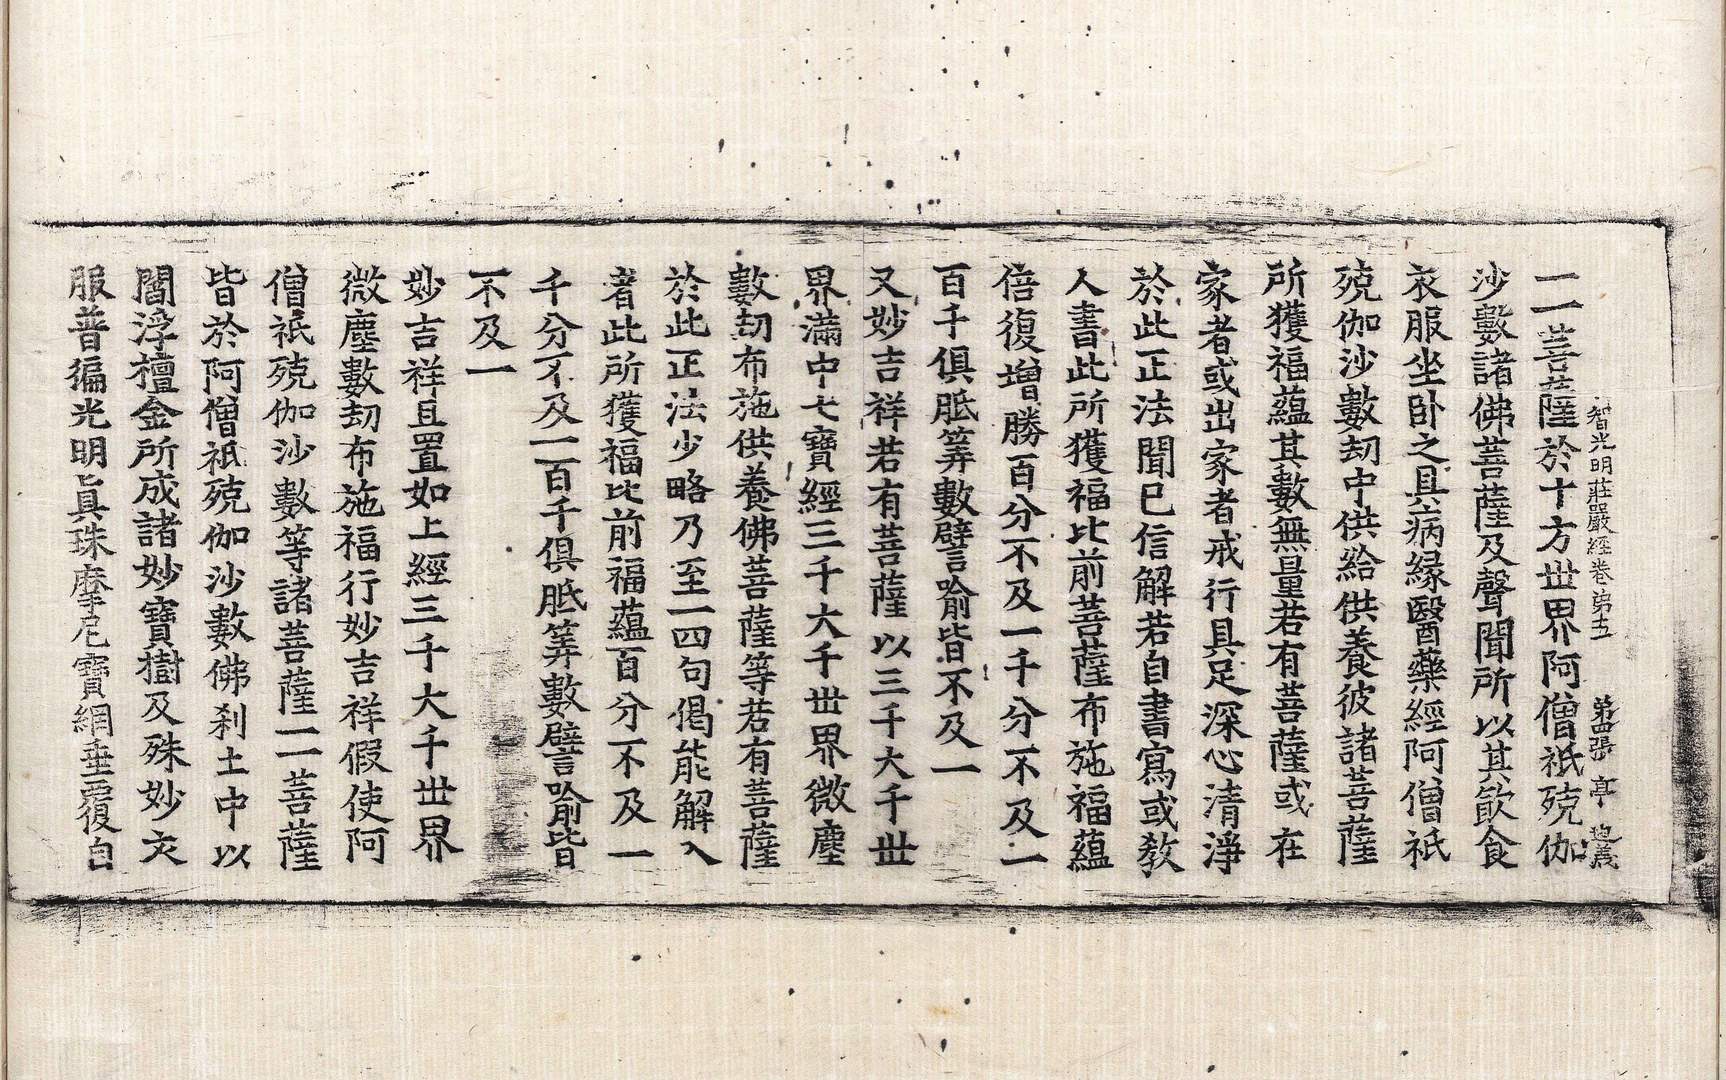 智光明莊嚴經卷第五 第四張 亭
一一菩薩於十方世界阿僧祇殑伽
沙數諸佛菩薩及聲聞所以其飲食
衣服坐卧之具病緣醫藥經阿僧祇
殑伽沙數劫中供給供養彼諸菩薩
所獲福蘊其數無量若有菩薩或在
家者或出家者戒行具足深心清淨
於此正法聞已信解若自書寫或教
人書此所獲福比前菩薩布施福蘊
倍復增勝百分不及一千分不及一
百千俱胝筭數譬喻皆不及一
又妙吉祥若有菩薩以三千大千世
界滿中七寶經三千大千世界微塵
數劫布施供養佛菩薩等若有菩薩
於此正法少略乃至一四句偈能解入
者此所獲福比前福蘊百分不及一
千分不及一百千俱胝筭數譬喻皆
不及一
妙吉祥且置如上經三千大千世界
微塵數劫布施福行妙吉祥假使阿
僧祇殑伽沙數等諸菩薩一一菩薩
皆於阿僧祇殑伽沙數佛剎土中以
閻浮檀金所成諸妙寶樹及殊妙衣
服普徧光明真珠摩尼寶網垂覆自